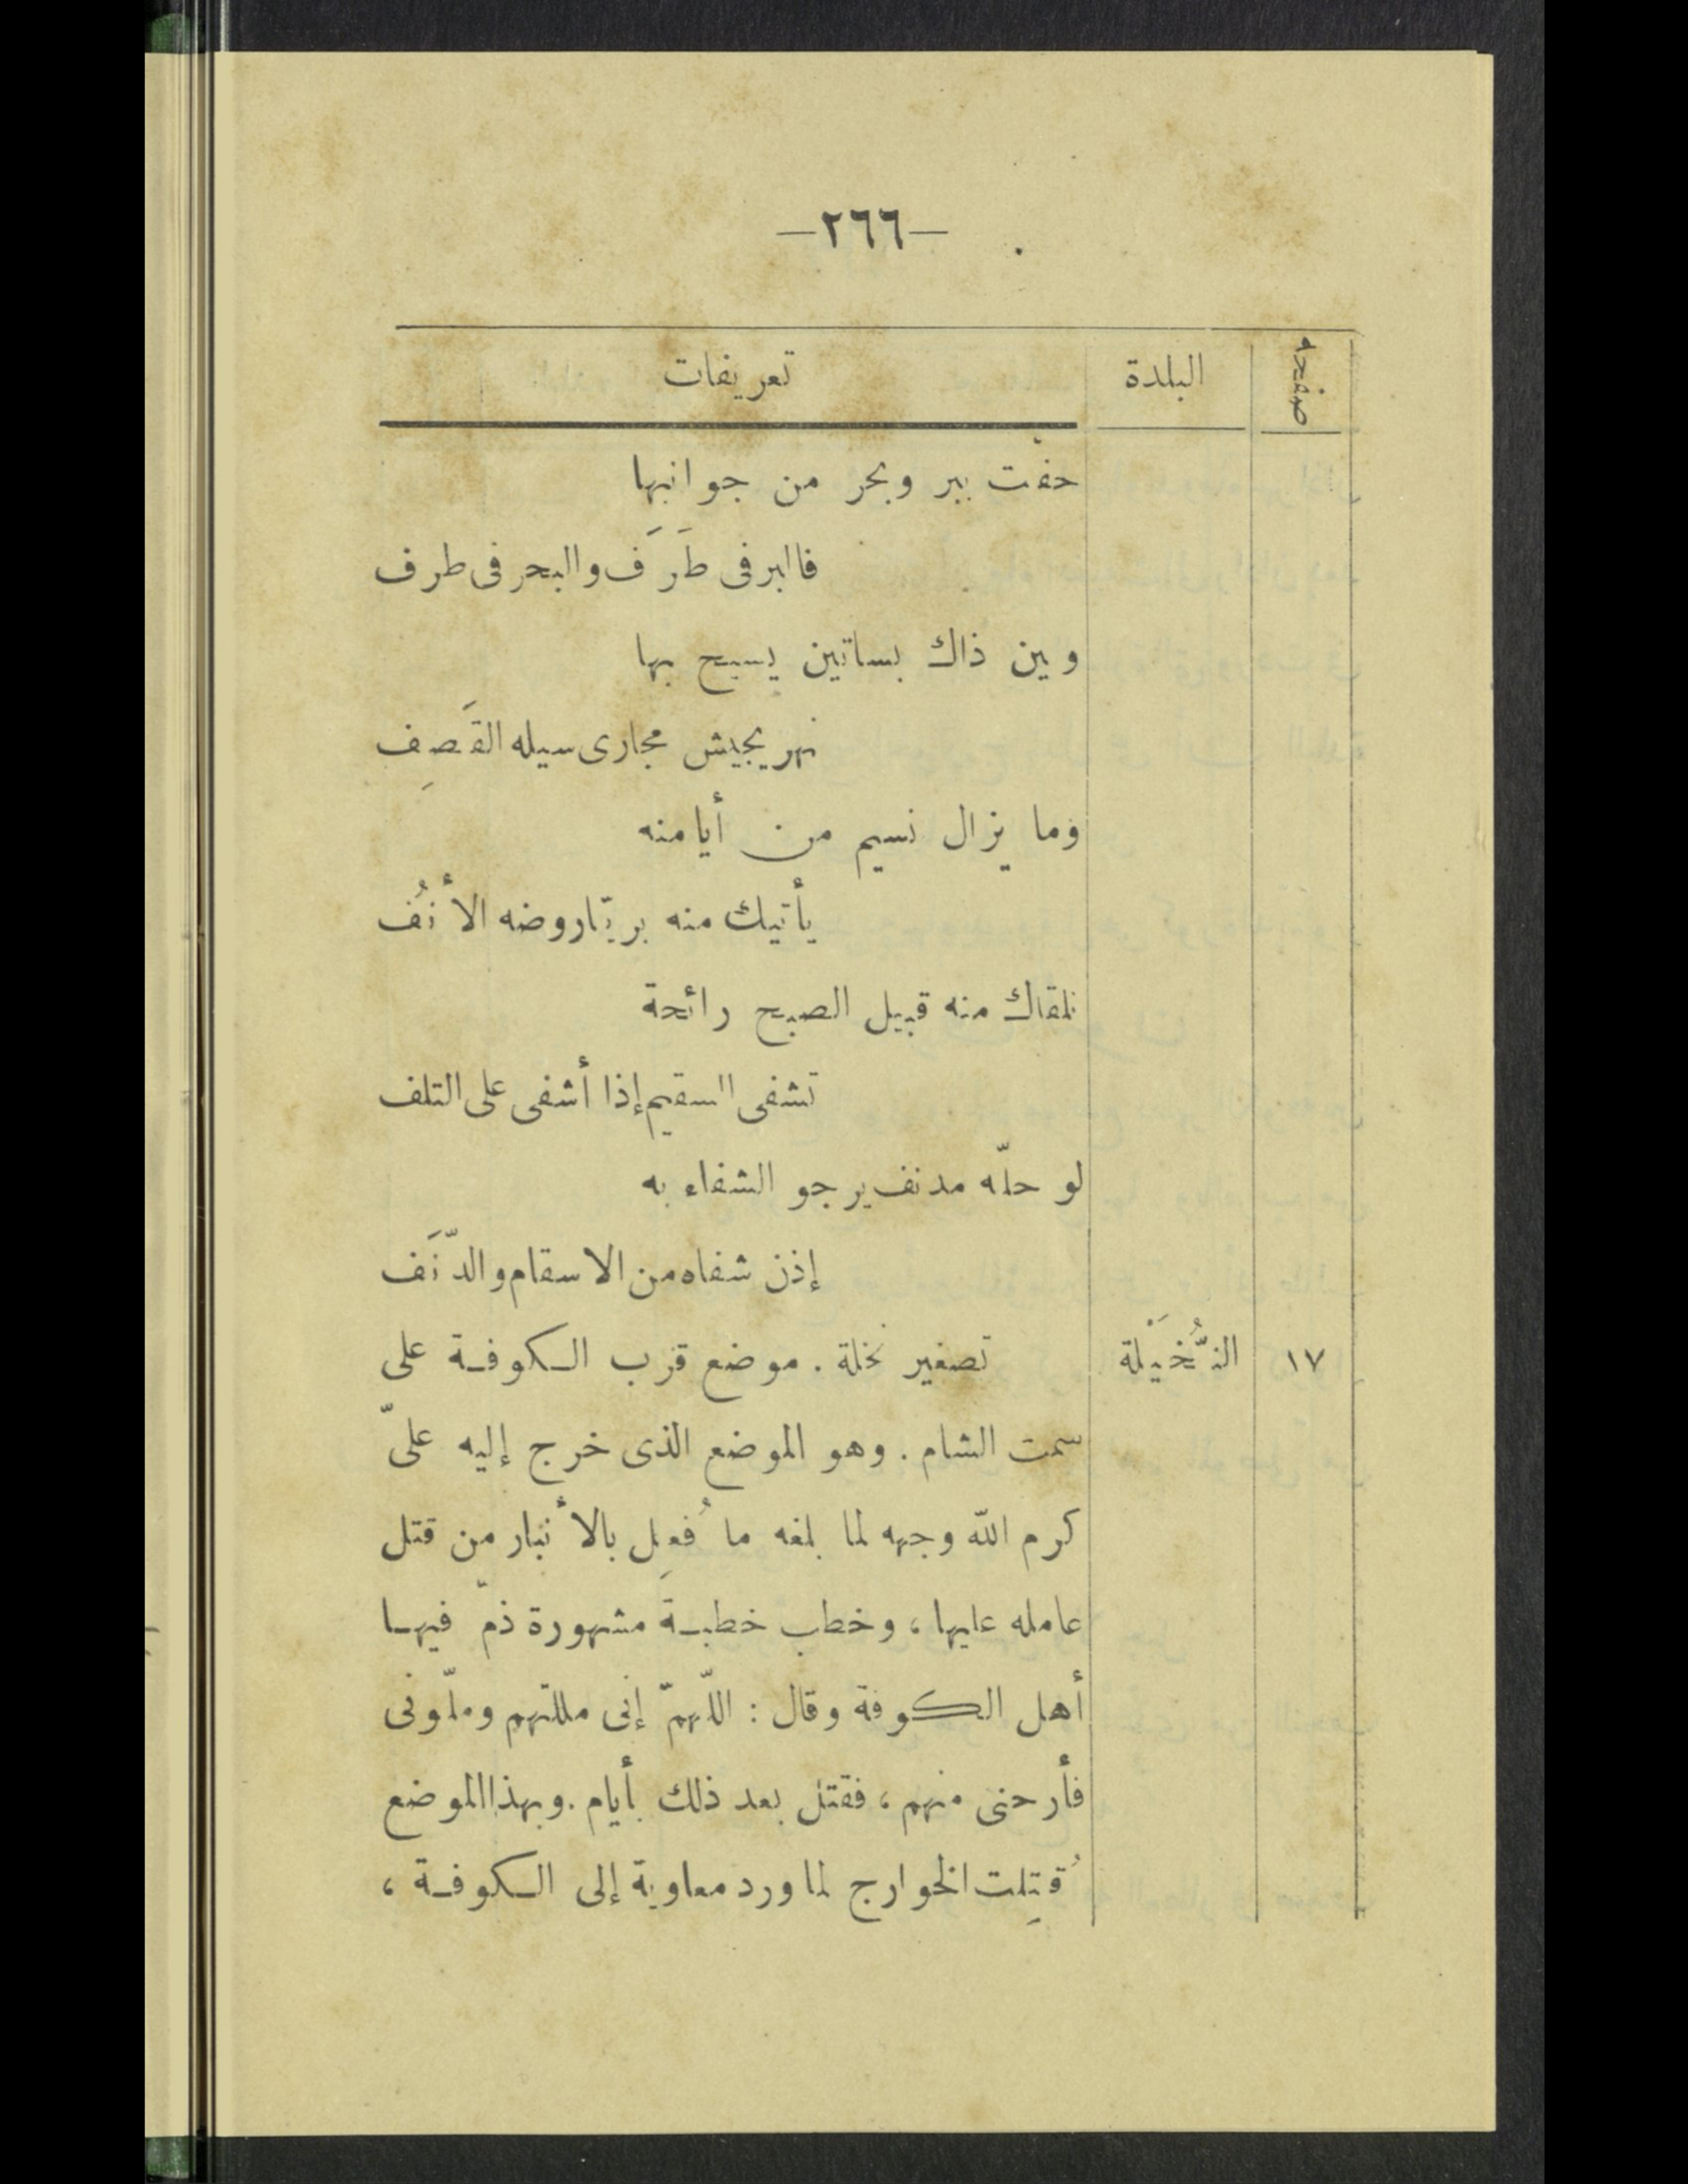 —٢٦٦—
صفحه البلدة تعريفات
حفت ببر وبحر من جوانبها
فالبر فى طَرَف والبحر فى طرف
وبين ذاك بساتين يسيح بها
نهر يجيش مجارى سيله القَصِف
وما يزال نسيم من أيامنه
يأتيك منه بريّا روضه الأنُف
تلقاك منه قبيل الصبح رائحة
تشفى السقيم إذا أشفى على التلف
لو حلّه مدنف يرجو الشفاء به
إذن شفاه من الاسقام والدّنَف
١٧ النُّخَيْلة تصغير نخلة . موضع قرب الكوفة على
سمت الشام . وهو الموضع الذى خرج إليه علىّ
كرم الله وجهه لما بلغه ما فُعِل بالأنبار من قتل
عامله عليها ، وخطب خطبةَ مشهورة ذمّ فيها
أهل الكوفة وقال : اللّهمّ إنى مللتهم وملّونى
فأرحنى منهم ، فقتل بعد ذلك بأيام . وبهذا الموضع
قُتِلت الخوارج لما ورد معاوية إلى الكوفة ،